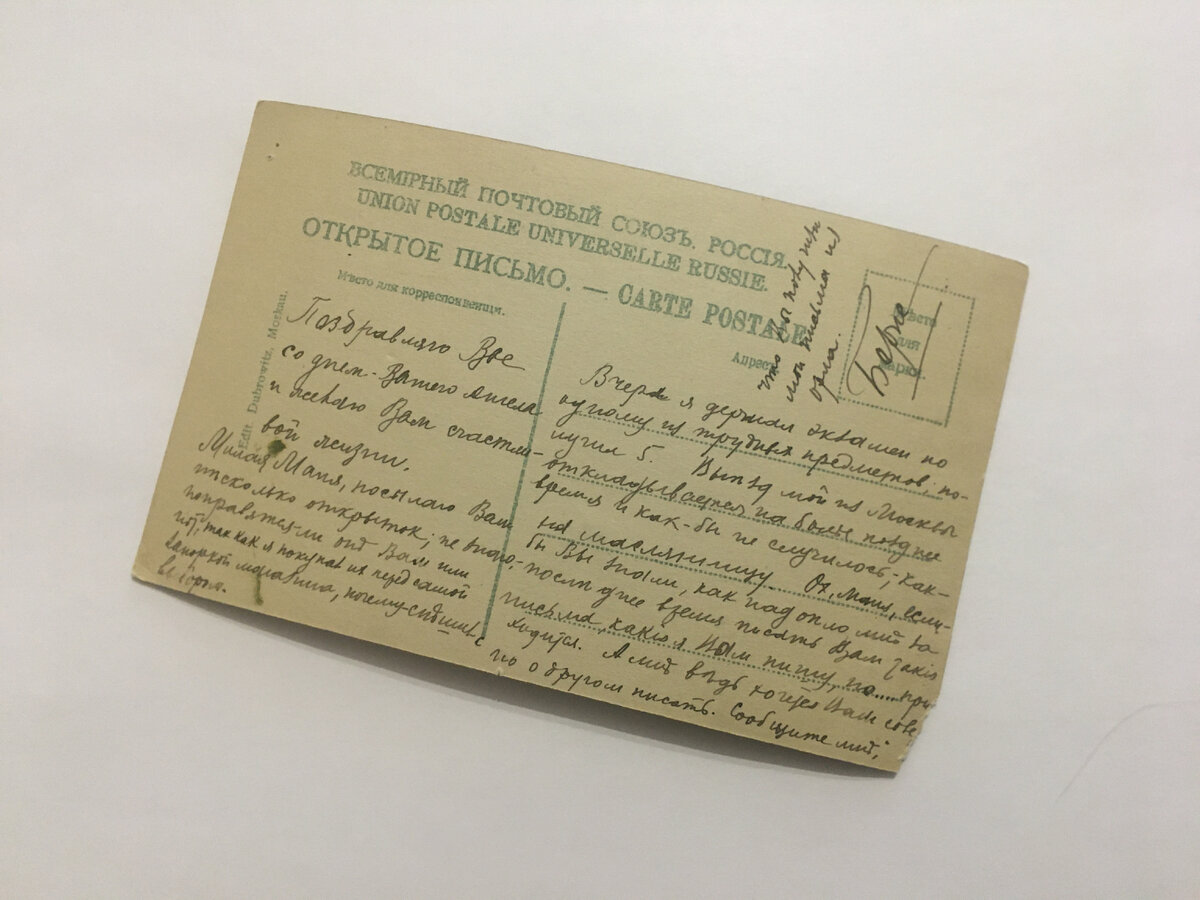 ВСЕМІРНЫЙ ПОЧТОВЫЙ СОЮЗЪ. РОССІЯ.
UNION POSTALE UNIVERSELLE RUSSIE.
ОТКРЫТОЕ ПИСЬМО. — CARTE POSTALE
Мѣсто для корреспонденціи.
Edit Dubrowitz, Moskau.
Поздравляю Вас
со днем Вашего Ангела
и желаю Вам счастли-
вой жизни.
Милая Маня, посылаю Вам
нѣсколько открыток; не знаю,
понравятся-ли онѣ Вам или
нѣт, так как я покупал их перед самой
запоркой магазина, почему спѣшил с
выбором.
Адрес
Мѣсто
для
марки.
Вчера я держал экзамен по
одному из трудных предметов; по-
лучил 5. Выѣзд мой из Москвы
откладывается на болѣе позднее
время и как-бы не случилось, как-
на масляницу. Ох, Маня, если-
бы Вы знали, как надоѣло мнѣ за
послѣднее время писать Вам такія
письма, какія я Вам пишу, но..... при-
ходится. А мнѣ вѣдь хочется Вам совсе
но о другом писать. Сообщите мнѣ,
что Вы получили
мои письма из
Орла.
Боря